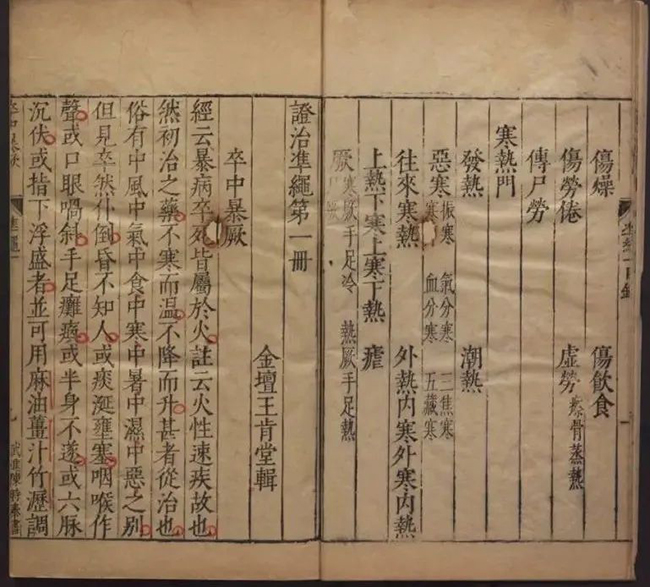 傷燥 傷飲食
傷勞倦 虛勞 瘵骨蒸熱
傳尸勞
寒熱門
發熱 潮熱
惡寒 振寒 寒 氣分寒 血分寒 三焦寒 五藏寒
往來寒熱 外熱內寒外寒內熱
上熱下寒上寒下熱 瘧
厥 寒厥手足冷 熱厥手足熱
證治準繩第一冊
金壇王肯堂輯
卒中暴厥
經云暴病卒死皆屬於火註云火性速疾故也
然初治之藥不寒而溫不降而升甚者從治也
俗有中風中氣中食中寒中暑中濕中惡之別
但見卒然仆倒昏不知人或痰涎壅塞咽喉作
聲或口眼喎斜手足癱瘓或半身不遂或六脉
沉伏或指下浮盛者並可用麻油薑汁竹瀝調
卒中暴厥 準繩一 武進陳時泰書